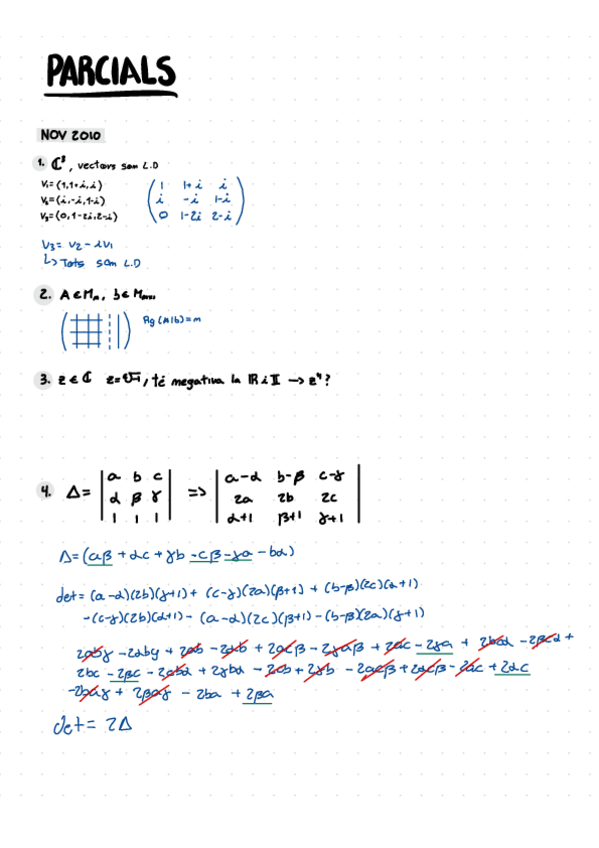 PARCIALS
NOV 2010
1. ℂ³, vectors són L.D
V₁=(1,1+i,i)
V₂=(i,-i,1-i)
V₃=(0,1-2i,2-i)
1 1+i i
i -i 1-i
0 1-2i 2-i
V₃= V₂ - iV₁
↳ Tots són L.D
2. A∈Mₙ, b∈
Rg(A|b)=m
3. z∈ℂ, té negativa la ℝ i II → z⁴?
4. Δ= | a b c | => | a-α b-β c-γ |
| α β γ | | 2a 2b 2c |
| 1 1 1 | | α+1 β+1 γ+1 |
Δ=(aβ + αc + γb - cβ - γa - bα)
det = (a-α)(2b)(γ+1) + (c-γ)(2a)(β+1) + (b-β)(2c)(α+1)
-(c-γ)(2b)(α+1) - (a-α)(2c)(β+1) - (b-β)(2a)(γ+1)
2abγ - 2αbγ + 2ab - 2αb + 2acβ - 2γaβ + 2ac - 2γa + 2bcα - 2βcα +
2bc - 2βc - 2cbα + 2γbα - 2cb + 2γb - 2acβ + 2αcβ - 2ac + 2αc
-2baγ + 2βaγ - 2ba + 2βa
det = 2Δ